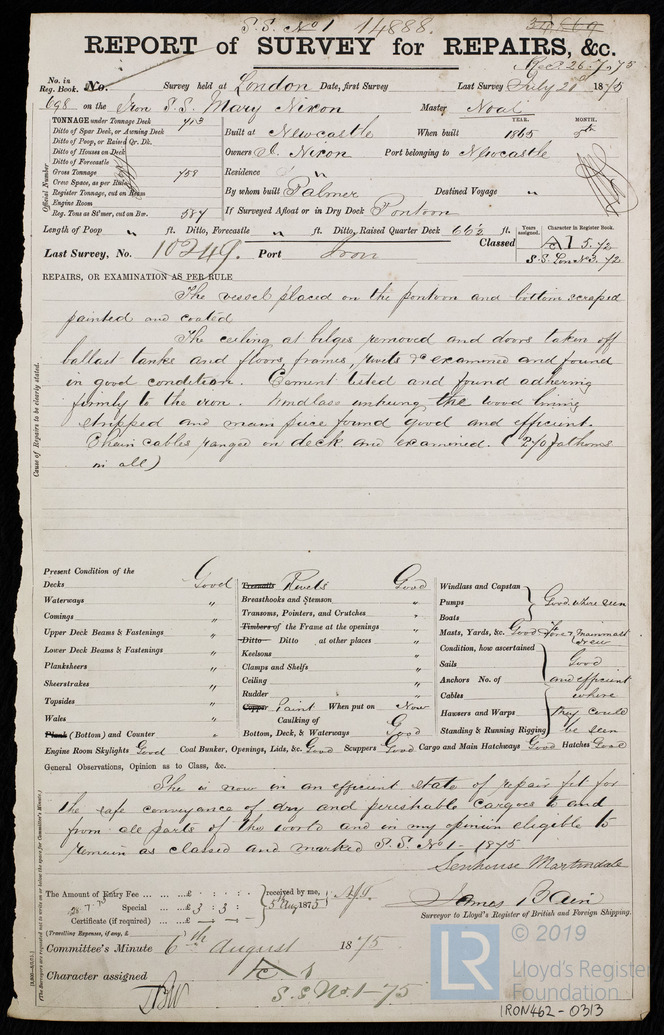 S.S. No 1 14888.
REPORT of SURVEY for REPAIRS, &c.
No. in Reg. Book. No. Survey held at London Date, first Survey Last Survey July 21st 1875
698 on the Iron S.S. Mary Nixon Master Noal
TONNAGE under Tonnage Deck 713
Ditto of Spar Deck, or Awning Deck
Ditto of Poop, or Raised Qr. Dk.
Ditto of Houses on Deck
Ditto of Forecastle
Gross Tonnage 758
Crew Space, as per Rule
Register Tonnage, cut on Beam
Engine Room
Reg. Tons as St'mer, cut on Bm. 587
Official Number
YEAR. MONTH.
Built at Newcastle When built 1865
Owners J. Nixon Port belonging to Newcastle
Residence "
By whom built Palmer Destined Voyage "
If Surveyed Afloat or in Dry Dock Pontoon
Length of Poop " ft. Ditto, Forecastle " ft. Ditto, Raised Quarter Deck 66½ ft.
Classed Years assigned. Character in Register Book.
A 1 5.72
S.S. Lon No 3. 72
Last Survey, No. 10249. Port Iron
REPAIRS, OR EXAMINATION AS PER RULE
The vessel placed on the pontoon and bottom scraped
painted and coated
The ceiling at bilges removed and doors taken off
ballast tanks and floors, frames, rivets &c examined and found
in good condition. Cement tested and found adhering
firmly to the iron. Windlass unhung the wood lining
stripped and main piece found good and efficient.
Chain cables ranged on deck and examined. (270 fathoms
in all)
Cause of Repairs to be clearly stated.
Present Condition of the
Decks Good
Waterways "
Comings "
Upper Deck Beams & Fastenings "
Lower Deck Beams & Fastenings "
Planksheers "
Sheerstrakes "
Topsides "
Wales "
Plank (Bottom) and Counter "
Treenails Rivets Good
Breasthooks and Stemson "
Transoms, Pointers, and Crutches "
Timbers of the Frame at the openings "
Ditto Ditto at other places "
Keelsons "
Clamps and Shelfs "
Ceiling "
Rudder "
Copper Paint When put on Now
Caulking of
Bottom, Deck, & Waterways Good
Windlass and Capstan
Pumps Good where seen
Boats
Masts, Yards, &c. Good Fore & Mainmast
Condition, how ascertained
Sails Good
Anchors No. of and efficient
Cables where
Hawsers and Warps they could
Standing & Running Rigging be seen
Engine Room Skylights Good Coal Bunker, Openings, Lids, &c. Good Scuppers Good Cargo and Main Hatchways Good Hatches Good
General Observations, Opinion as to Class, &c.
She is now in an efficient state of repair fit for
the safe conveyance of dry and perishable cargoes to and
from all parts of the world and in my opinion eligible to
remain as classed and marked S.S. No 1 - 1875
Senhouse Martindale
The Amount of Entry Fee ... ... ... £ : :
Special ... ... £ 3 : 3 :
Certificate (if required) ... £
received by me,
5 Aug 1875
(Travelling Expenses, if any, £
James Bain
Surveyor to Lloyd's Register of British and Foreign Shipping.
Committee's Minute 6th August 1875
Character assigned
S.S No. 1-75
LR
© 2019
Lloyd's Register
Foundation
IRON462-0313